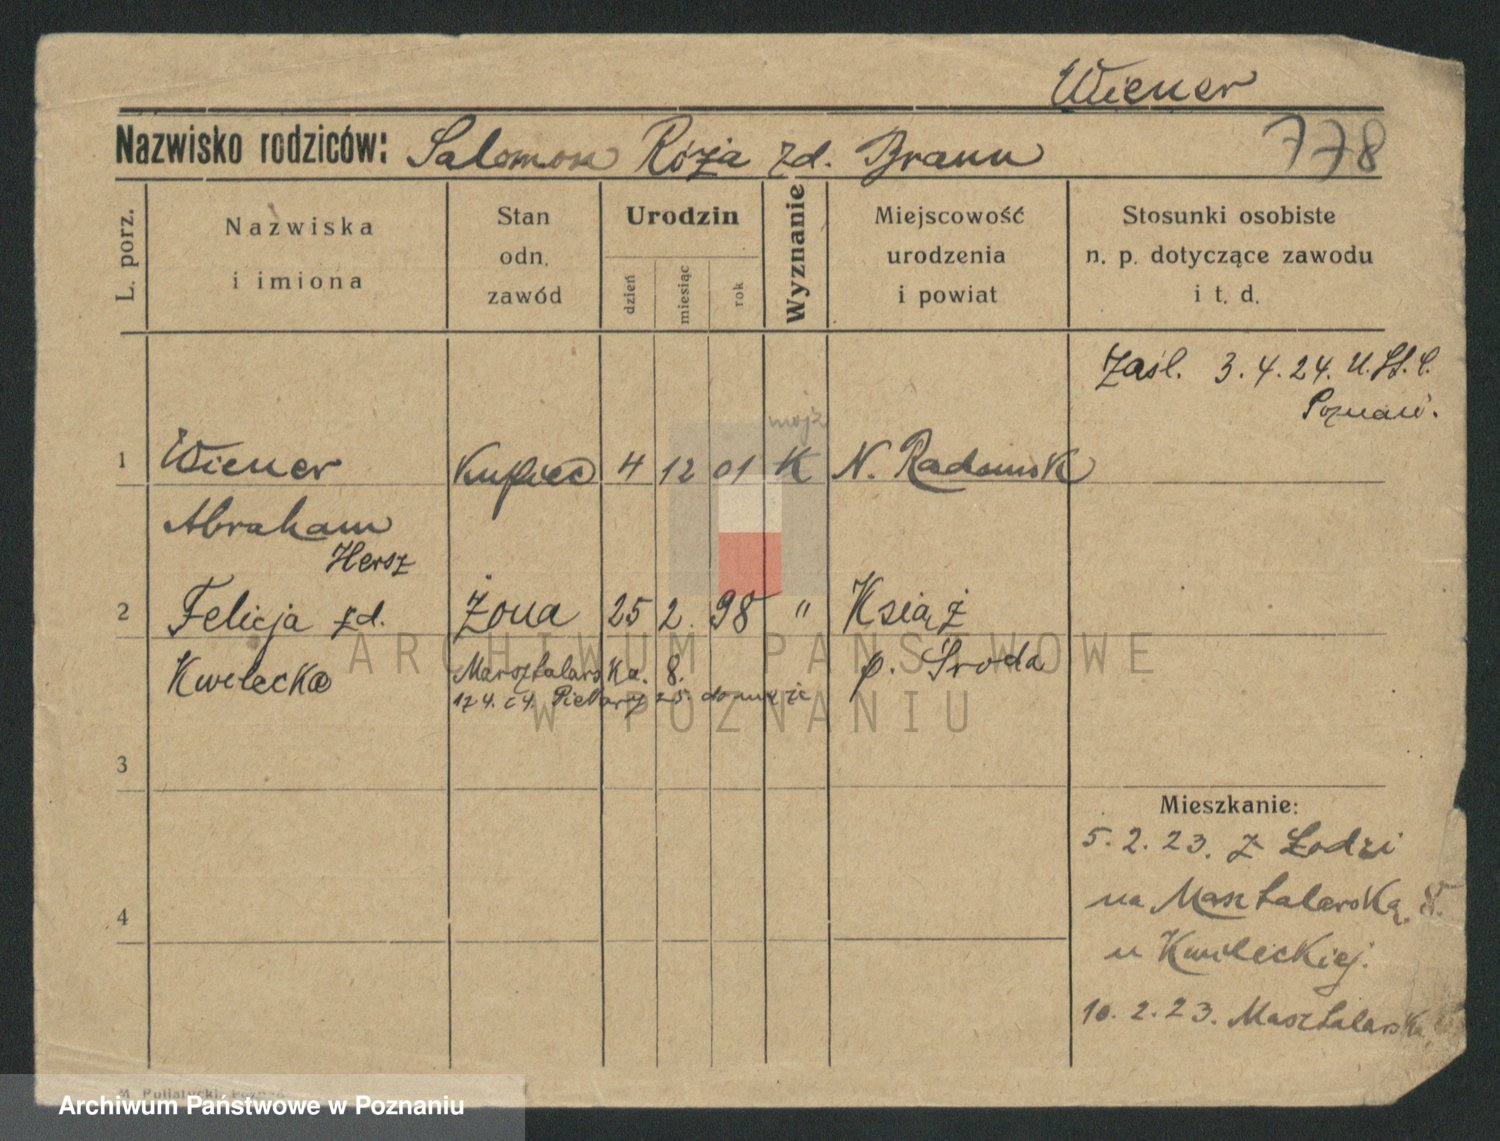 Wiener
Nazwisko rodziców: Salomon Róża zd. Braun 778
L. porz.
Nazwiska i imiona
Stan odn. zawód
Urodzin
dzień miesiąc rok
Wyznanie
Miejscowość urodzenia i powiat
Stosunki osobiste n. p. dotyczące zawodu i t. d.
Zaśl. 3.4.24. U.St.C.
Poznań.
mojż
1 Wiener Kupiec 4 12 01 K N. Radomsk
Abraham
Hersz
2 Felicja zd. Żona 25 2. 98 " Książ
Kwilecka Masztalarska. 8. p. Środa
Piekary 25.
3
Mieszkanie:
5.2.23. z Łodzi
na Masztalarską 8.
4
u Kwileckiej.
10.2.23. Masztalarska
ARCHIWUM PAŃSTWOWE
W POZNANIU
Archiwum Państwowe w Poznaniu